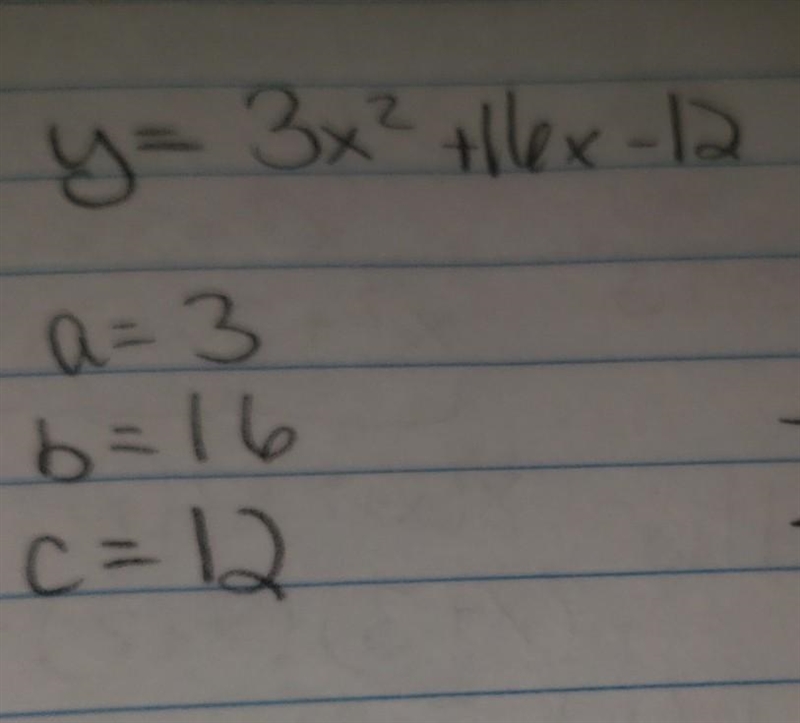 y = 3x² +16x - 12
a = 3
b = 16
c = 12